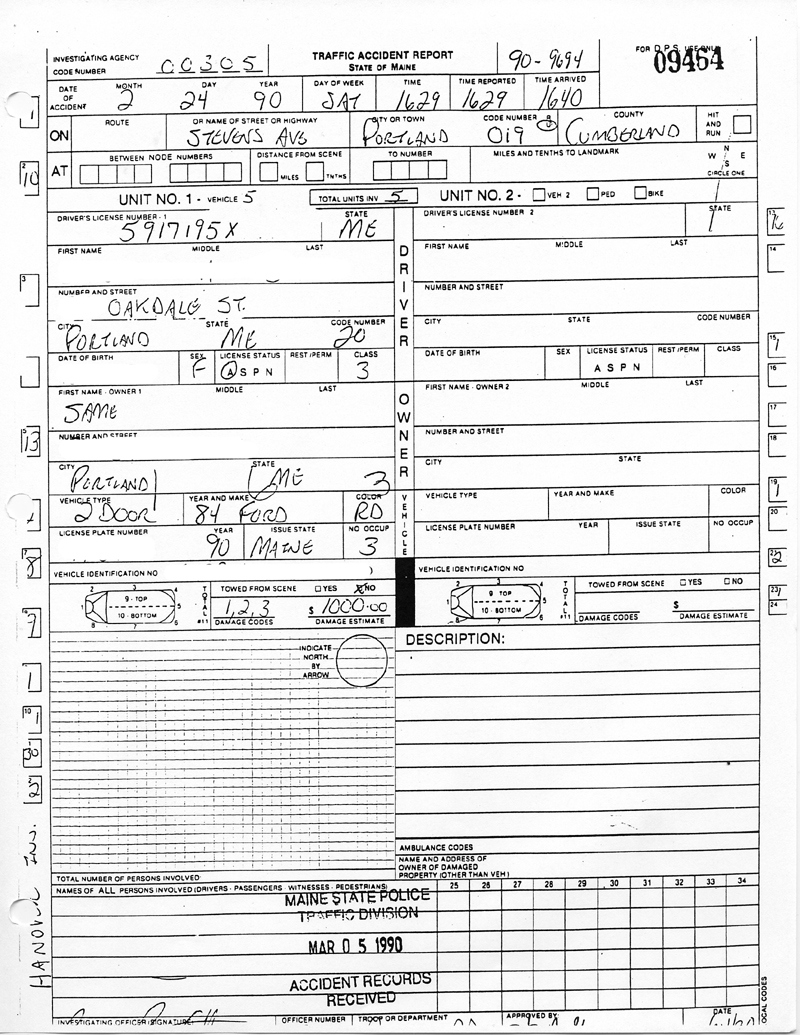 INVESTIGATING AGENCY
CODE NUMBER 00305
TRAFFIC ACCIDENT REPORT
STATE OF MAINE
90-9694
FOR D.P.S. USE ONLY
09464
DATE OF ACCIDENT
MONTH 2 DAY 24 YEAR 90 DAY OF WEEK SAT TIME 1629 TIME REPORTED 1629 TIME ARRIVED 1640
ON ROUTE OR NAME OF STREET OR HIGHWAY STEVENS AVS CITY OR TOWN PORTLAND CODE NUMBER 019 COUNTY CUMBERLAND HIT AND RUN
AT BETWEEN NODE NUMBERS DISTANCE FROM SCENE MILES TNTHS TO NUMBER MILES AND TENTHS TO LANDMARK N W E S CIRCLE ONE
UNIT NO. 1 - VEHICLE 5 TOTAL UNITS INV 5 UNIT NO. 2 - VEH 2 PED BIKE
DRIVER'S LICENSE NUMBER - 1 5917195X STATE ME
DRIVER'S LICENSE NUMBER 2 STATE
FIRST NAME MIDDLE LAST
FIRST NAME MIDDLE LAST
DRIVER
NUMBER AND STREET OAKDALE ST.
NUMBER AND STREET
CITY PORTLAND STATE ME CODE NUMBER 20
CITY STATE CODE NUMBER
DATE OF BIRTH SEX F LICENSE STATUS A S P N REST/PERM CLASS 3
DATE OF BIRTH SEX LICENSE STATUS A S P N REST/PERM CLASS
FIRST NAME - OWNER 1 MIDDLE LAST
SAME
FIRST NAME - OWNER 2 MIDDLE LAST
OWNER
NUMBER AND STREET
NUMBER AND STREET
CITY PORTLAND STATE ME 3
CITY STATE
VEHICLE TYPE 2 DOOR YEAR AND MAKE 84 FORD COLOR RD
VEHICLE TYPE YEAR AND MAKE COLOR
VEHICLE
LICENSE PLATE NUMBER YEAR 90 ISSUE STATE MAINE NO OCCUP 3
LICENSE PLATE NUMBER YEAR ISSUE STATE NO OCCUP
VEHICLE IDENTIFICATION NO
VEHICLE IDENTIFICATION NO
9 - TOP 10 - BOTTOM TOTAL #11 TOWED FROM SCENE YES NO
1,2,3 DAMAGE CODES $ 1000.00 DAMAGE ESTIMATE
9 - TOP 10 - BOTTOM TOTAL #11 TOWED FROM SCENE YES NO
DAMAGE CODES $ DAMAGE ESTIMATE
INDICATE NORTH BY ARROW
DESCRIPTION:
AMBULANCE CODES
NAME AND ADDRESS OF OWNER OF DAMAGED PROPERTY (OTHER THAN VEH)
TOTAL NUMBER OF PERSONS INVOLVED
NAMES OF ALL PERSONS INVOLVED (DRIVERS - PASSENGERS - WITNESSES - PEDESTRIANS)
25 26 27 28 29 30 31 32 33 34
MAINE STATE POLICE
TRAFFIC DIVISION
MAR 05 1990
ACCIDENT RECORDS
RECEIVED
INVESTIGATING OFFICER (SIGNATURE) OFFICER NUMBER TROOP OR DEPARTMENT APPROVED BY DATE
LOCAL CODES
HANOVER INS.